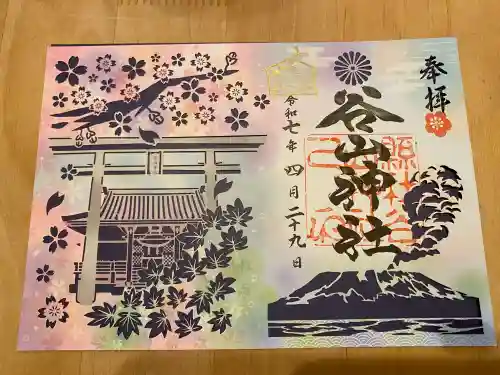 奉拝
谷山神社
令和七年四月二十九日